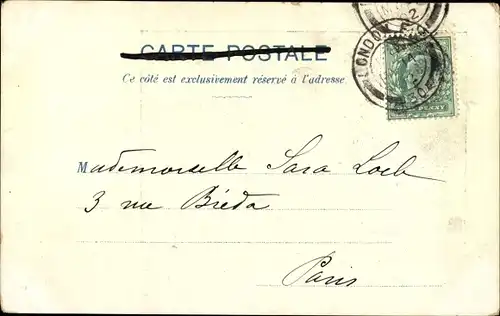 CARTE POSTALE
Ce côté est exclusivement réservé à l'adresse.
LONDON
PENNY
Mademoiselle Sara Loeb
3 rue Bréda
Paris